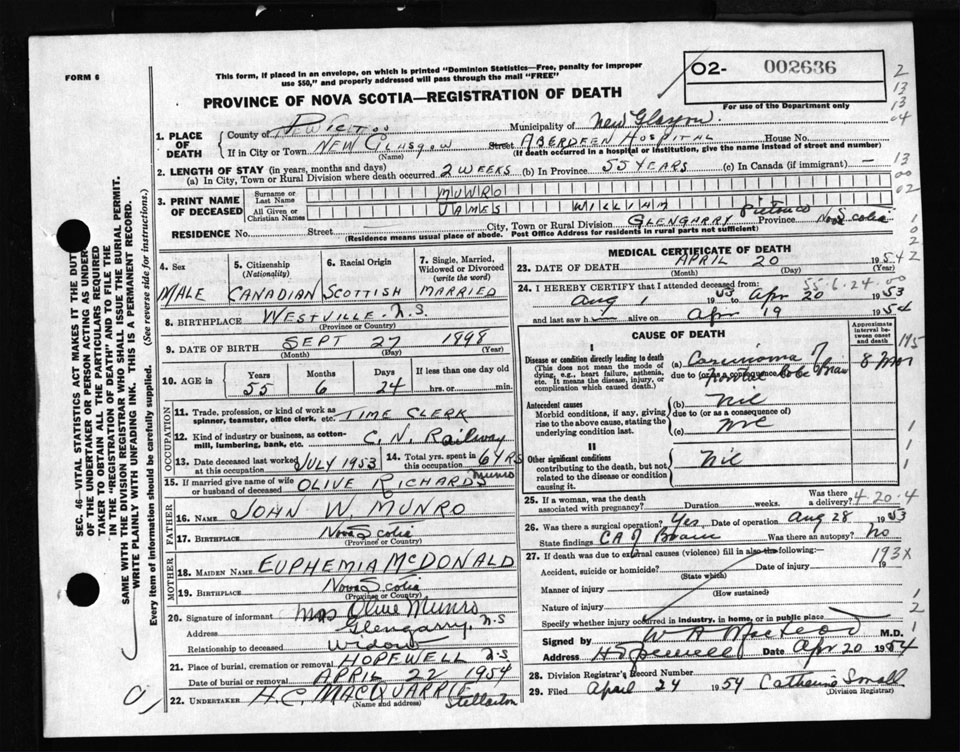 FORM 6
This form, if placed in an envelope, on which is printed "Dominion Statistics—Free, penalty for improper
use $50," and properly addressed will pass through the mail "FREE"
PROVINCE OF NOVA SCOTIA—REGISTRATION OF DEATH
O2- 002636
For use of the Department only
2
13
13
04
13
00
02
1
0
2
SEC. 46—VITAL STATISTICS ACT MAKES IT THE DUTY
OF THE UNDERTAKER OR PERSON ACTING AS UNDER-
TAKER TO OBTAIN ALL THE PARTICULARS REQUIRED
IN THE "REGISTRATION OF DEATH" AND TO FILE THE
SAME WITH THE DIVISION REGISTRAR WHO SHALL ISSUE THE BURIAL PERMIT.
WRITE PLAINLY WITH UNFADING INK. THIS IS A PERMANENT RECORD.
Every item of information should be carefully supplied. (See reverse side for instructions.)
1. PLACE OF DEATH
County of Pictou Municipality of New Glasgow
If in City or Town NEW GLASGOW Street ABERDEEN HOSPITAL House No.
(Name) (If death occurred in a hospital or institution, give the name instead of street and number)
2. LENGTH OF STAY (in years, months and days)
(a) In City, Town or Rural Division where death occurred 2 WEEKS (b) In Province 55 YEARS (c) In Canada (if immigrant) —
3. PRINT NAME OF DECEASED
Surname or Last Name MUNRO
All Given or Christian Names JAMES WILLIAM
RESIDENCE No. Street City, Town or Rural Division GLENGARRY Pictou Co Province Nova Scotia
(Residence means usual place of abode. Post Office Address for residents in rural parts not sufficient)
4. Sex
MALE
5. Citizenship (Nationality)
CANADIAN
6. Racial Origin
SCOTTISH
7. Single, Married, Widowed or Divorced (write the word)
MARRIED
8. BIRTHPLACE WESTVILLE N.S.
(Province or Country)
9. DATE OF BIRTH SEPT 27 1898
(Month) (Day) (Year)
10. AGE in Years Months Days If less than one day old
55 6 24 hrs. or min.
OCCUPATION
11. Trade, profession, or kind of work as
spinner, teamster, office clerk, etc. TIME CLERK
12. Kind of industry or business, as cotton-
mill, lumbering, bank, etc. C.N. Railway
13. Date deceased last worked at this occupation JULY 1953
14. Total yrs. spent in this occupation 6 YRS
15. If married give name of wife or husband of deceased OLIVE RICHARDS Munro
FATHER
16. NAME JOHN W. MUNRO
17. BIRTHPLACE Nova Scotia
(Province or Country)
MOTHER
18. MAIDEN NAME EUPHEMIA McDONALD
19. BIRTHPLACE Nova Scotia
(Province or Country)
20. Signature of informant Mrs Olive Munro
Address Glengarry, N.S
Relationship to deceased Widow
21. Place of burial, cremation or removal HOPEWELL N.S
Date of burial or removal APRIL 22 1954
22. UNDERTAKER H.C. MACQUARRIE Stellarton
(Name and address)
MEDICAL CERTIFICATE OF DEATH
23. DATE OF DEATH APRIL 20 1954
(Month) (Day) (Year)
24. I HEREBY CERTIFY that I attended deceased from: 55-6-24-0
Aug 1 1953 to Apr 20 1953
and last saw h alive on Apr 19 1954
CAUSE OF DEATH
Approximate interval between cause and death
I
Disease or condition directly leading to death
(This does not mean the mode of dying, e.g., heart failure, asthenia, etc. It means the disease, injury, or complication which caused death.)
(a) Carcinoma of
due to (or as a consequence of)
Frontal lobe Brain
8 mos
195
Antecedent causes
Morbid conditions, if any, giving rise to the above cause, stating the underlying condition last.
(b) Nil
due to (or as a consequence of)
(c) Nil
II
Other significant conditions
contributing to the death, but not related to the disease or condition causing it.
Nil
1
1
25. If a woman, was the death associated with pregnancy? Duration weeks. Was there a delivery? 4.20.4
26. Was there surgical operation? Yes Date of operation Aug 28 1953
State findings CA of Brain Was there an autopsy? No
27. If death was due to external causes (violence) fill in also the following: 193X
Accident, suicide or homicide? Date of injury 19
(State which)
Manner of injury
(How sustained)
Nature of injury
Specify whether injury occurred in industry, in home, or in public place
1
2
1
Signed by W A MacLeod M.D.
Address Hopewell Date Apr 20 1954
28. Division Registrar's Record Number
29. Filed April 24 1954 Catherine Small
(Division Registrar)